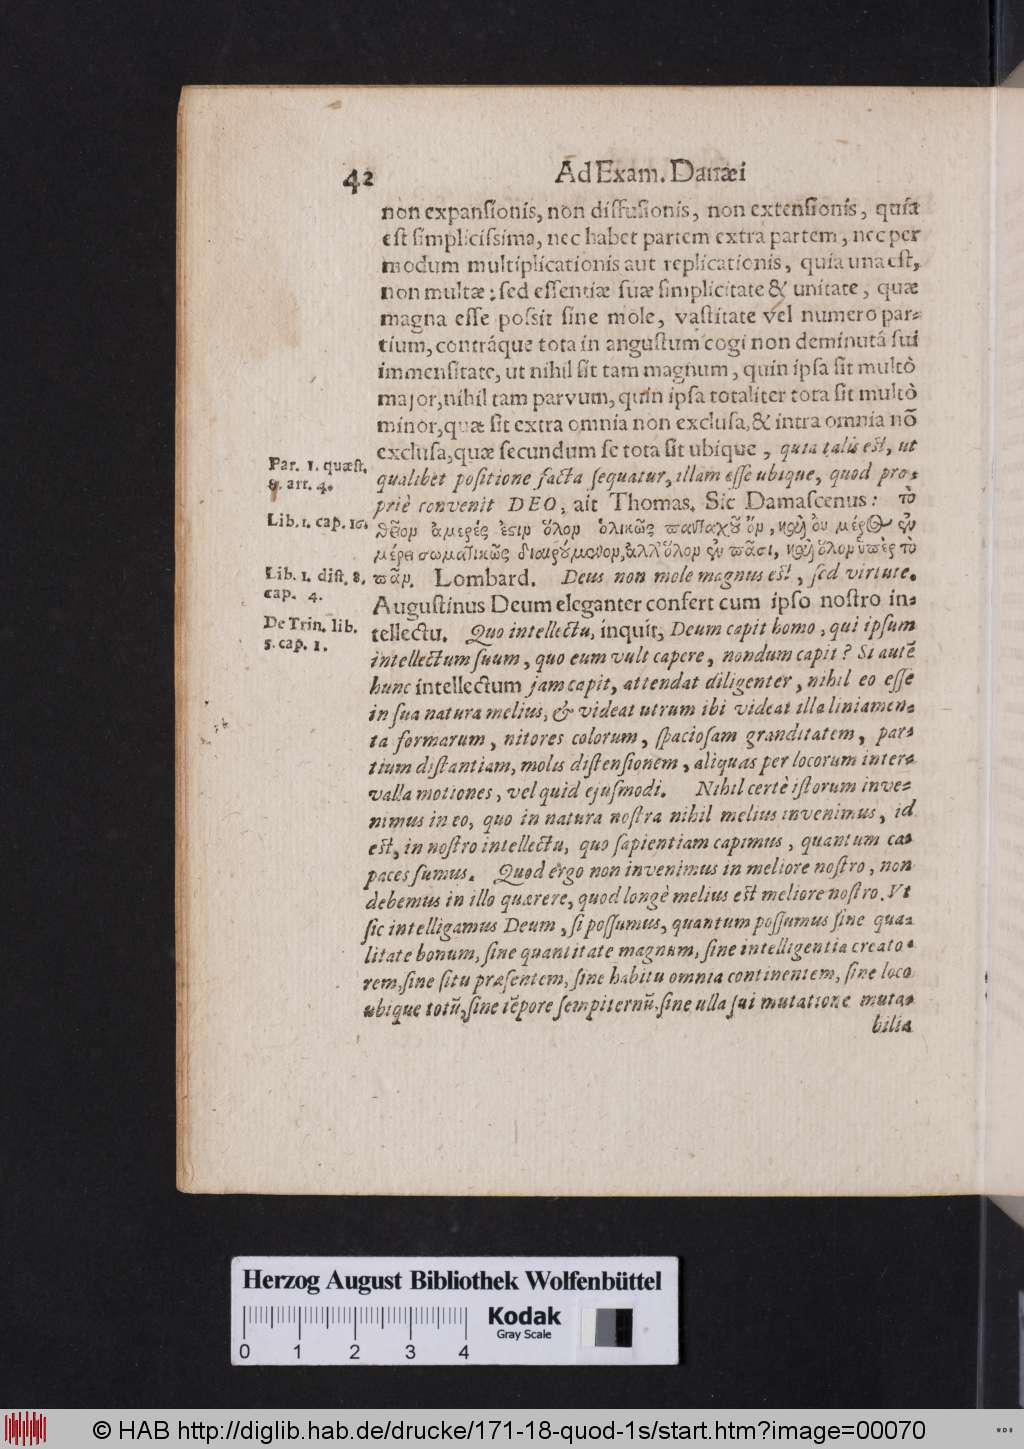 42
Ad Exam. Danæi
non expansionis, non diffusionis, non extensionis, quia
est simplicissima, nec habet partem extra partem, nec per
modum multiplicationis aut replicationis, quia una est,
non multæ: sed essentiæ suæ simplicitate & unitate, quæ
magna esse possit sine mole, vastitate vel numero par-
tium, contráque tota in angustum cogi non deminutâ sui
immensitate, ut nihil sit tam magnum, quin ipsa sit multò
major, nihil tam parvum, quin ipsa totaliter tota sit multò
minor, quæ sit extra omnia non exclusa, & intra omnia nō
exclusa, quæ secundum se tota sit ubique, quia talis est, ut
qualibet positione facta sequatur, illam esse ubique, quod pro-
priè convenit DEO, ait Thomas. Sic Damascenus: τὸ
θεῖον ἀμερές ἐστιν ὅλον ὁλικῶς πανταχοῦ ὄν, καὶ οὐ μέρος ἐν
μέρει σωματικῶς διαιρούμενον, ἀλλ' ὅλον ἐν πᾶσι, καὶ ὅλον ὑπὲρ τὸ
πᾶν. Lombard. Deus non mole magnus est, sed virtute.
Augustinus Deum eleganter confert cum ipso nostro in-
tellectu. Quo intellectu, inquit, Deum capit homo, qui ipsum
intellectum suum, quo eum vult capere, nondum capit? Si autē
hunc intellectum jam capit, attendat diligenter, nihil eo esse
in sua natura melius, & videat utrum ibi videat illa liniamen-
ta formarum, nitores colorum, spaciosam granditatem, par-
tium distantiam, molis distensionem, aliquas per locorum inter-
valla motiones, vel quid ejusmodi. Nihil certè istorum inve-
nimus in eo, quo in natura nostra nihil melius invenimus, id
est, in nostro intellectu, quo sapientiam capimus, quantum ca-
paces sumus. Quod ergo non invenimus in meliore nostro, non
debemus in illo quærere, quod longè melius est meliore nostro. Vt
sic intelligamus Deum, si possumus, quantum possumus sine qua-
litate bonum, sine quantitate magnum, sine intelligentia creato-
rem, sine situ præsentem, sine habitu omnia continentem, sine loco
ubique totū, sine tēpore sempiternū, sine ulla sui mutatione muta-
bilia
Par. 1. quæst.
8. art. 4.
Lib. 1. cap. 16.
Lib. 1. dist. 8,
cap. 4.
De Trin. lib.
5. cap. 1.
Herzog August Bibliothek Wolfenbüttel
Kodak
Gray Scale
0 1 2 3 4
© HAB http://diglib.hab.de/drucke/171-18-quod-1s/start.htm?image=00070